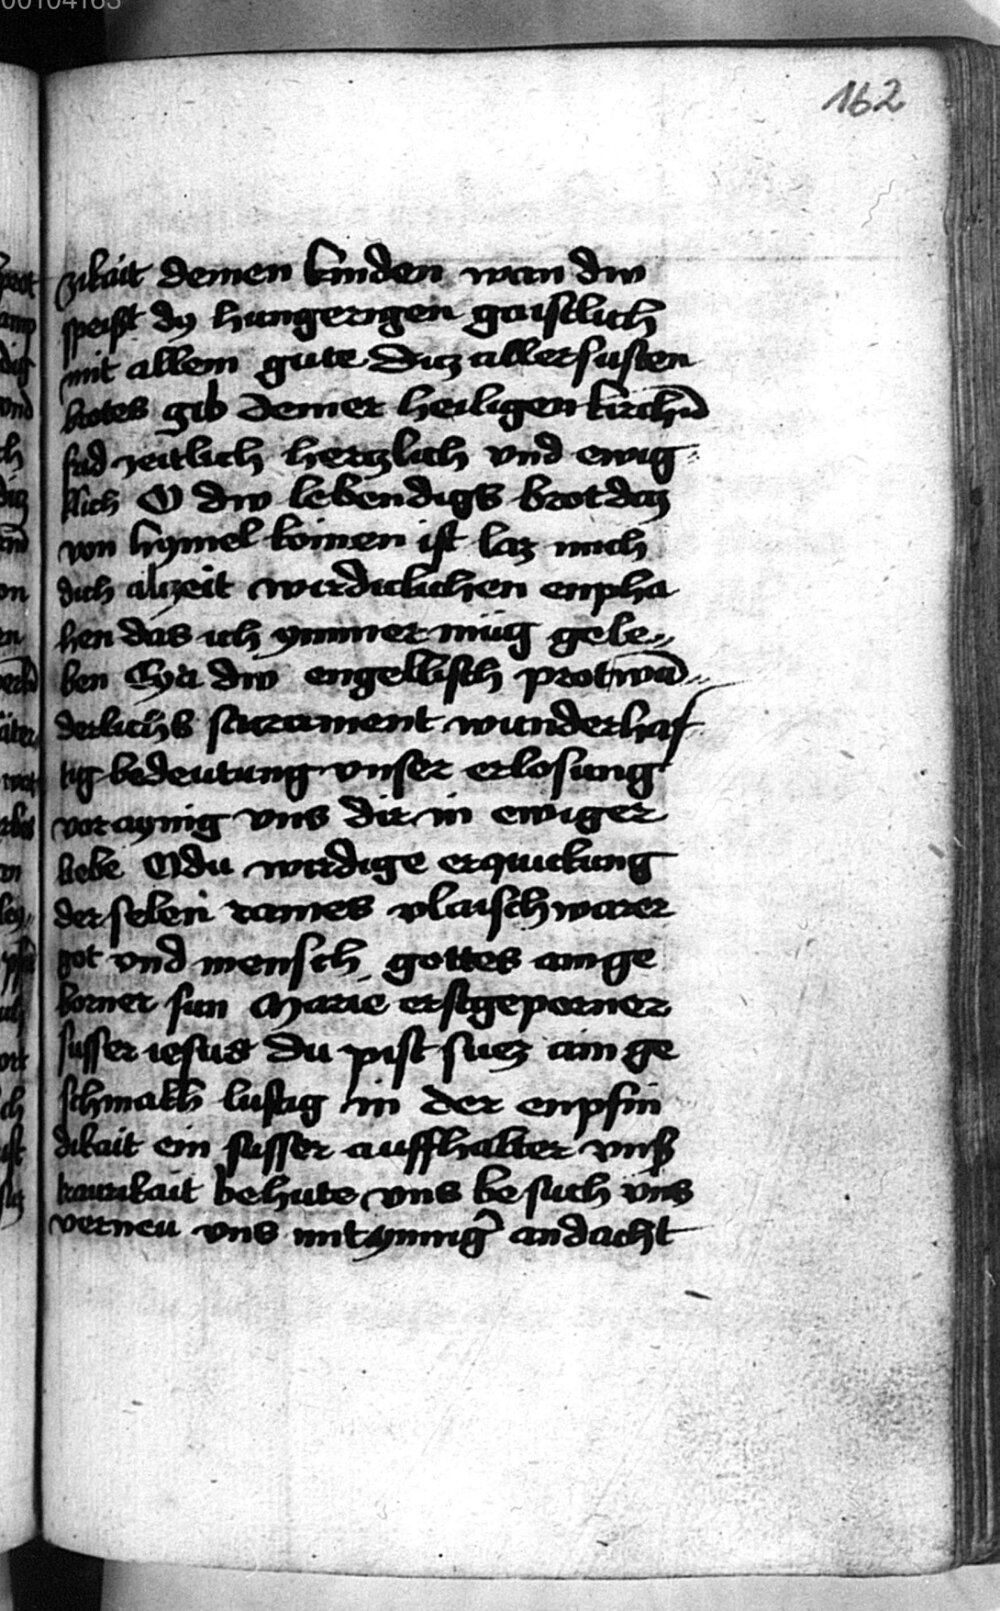 00104163
162
zikait deinen kinden wan dw
speist dy hungerigen gaistlich
mit allem gute Diz allersusten
brotes gib deiner heiligen kirchn̄
frid zeitlich hertzlich vnd ewig
klich O dw lebendigs brot daz
von hymel komen ist laz mich
dich alzeit wirdiclichen enpha
hen das ich ymmer müg gele
ben Eya dw engellisch prot wū
derlichs sacrament wunderhaf
tig bedeutung vnser erlosung
vor aynig vns dir in ewiger
liebe O du wirdige erquickung
der selen raines vlaisch warer
got vnd mensch gottes ainge
borner sun Marie erstgeporner
susser iesus Du pist suez am ge
schmakh lustig in der enpfin
dikait ein susser auffhalter vnß
traurikait behute vns besuch vns
verneu vns mit ynnigr̄ andacht